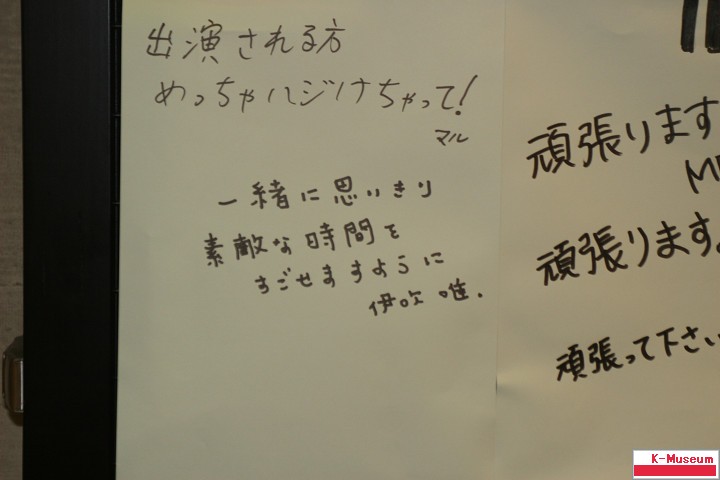 出演される方
めっちゃハジけちゃって!
マル
一緒に思いきり
素敵な時間を
すごせますように
伊吹 唯.
頑張ります
頑張ります。
頑張って下さい
K-Museum